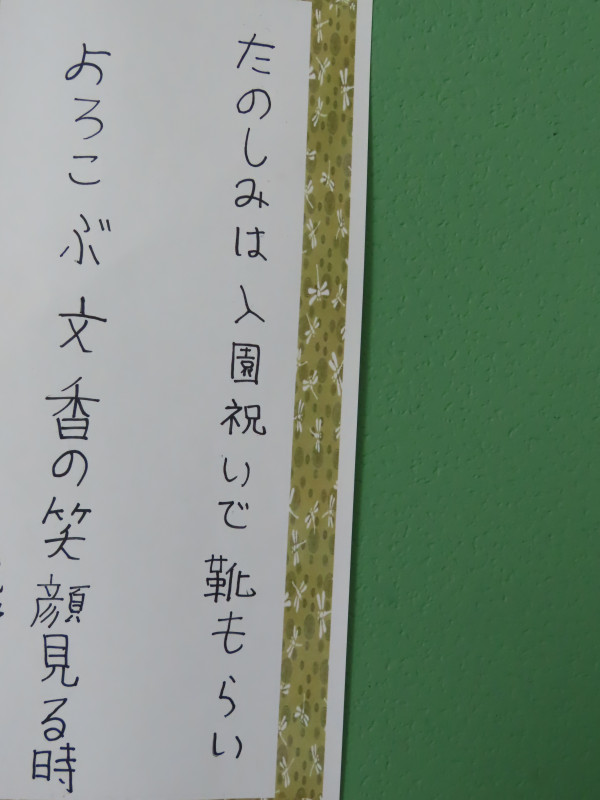 たのしみは入園祝いで靴もらい
よろこぶ文香の笑顔見る時